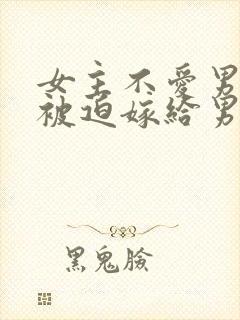 女主不愛男
被迫嫁給男
黑鬼臉